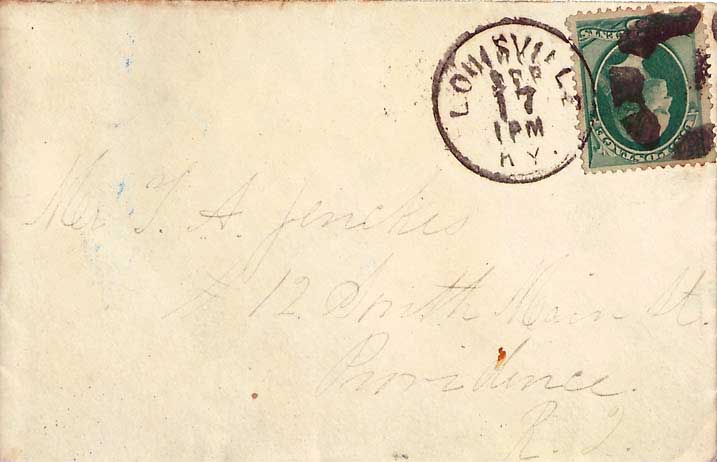 LOUISVILLE
SEP
17
1PM
KY.
Mr T. A. Jenckes
# 12 South Main St.
Providence.
R. I.